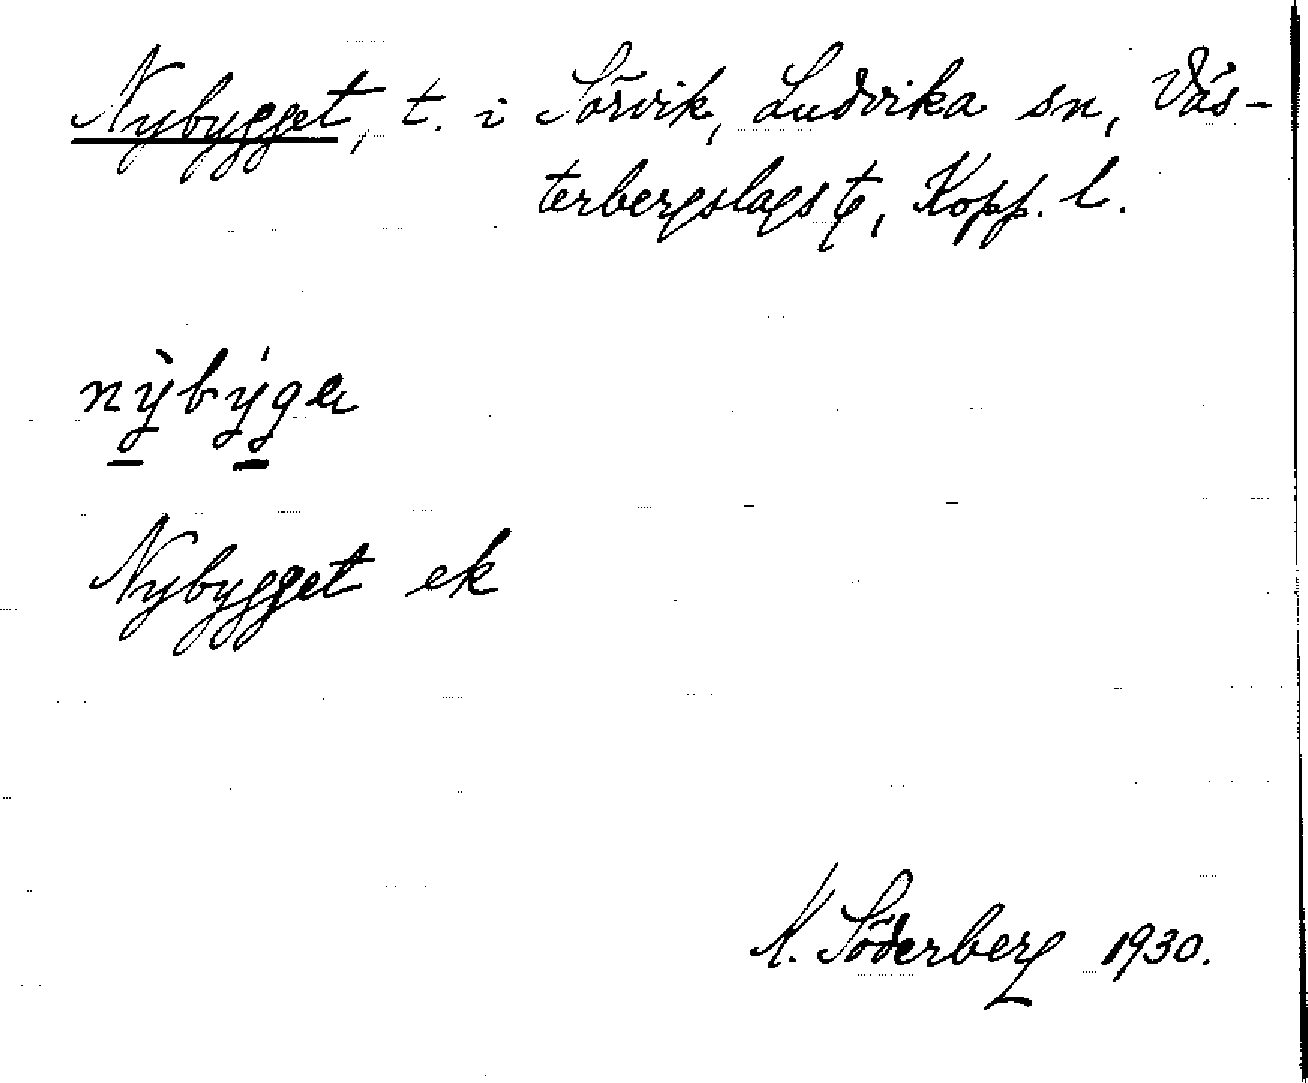 Nybygget, t. i Sörvik, Ludvika sn, Väs-
terbergslags t, Kopp. l.
nỳbýga
Nybygget ek
K. Söderberg 1930.